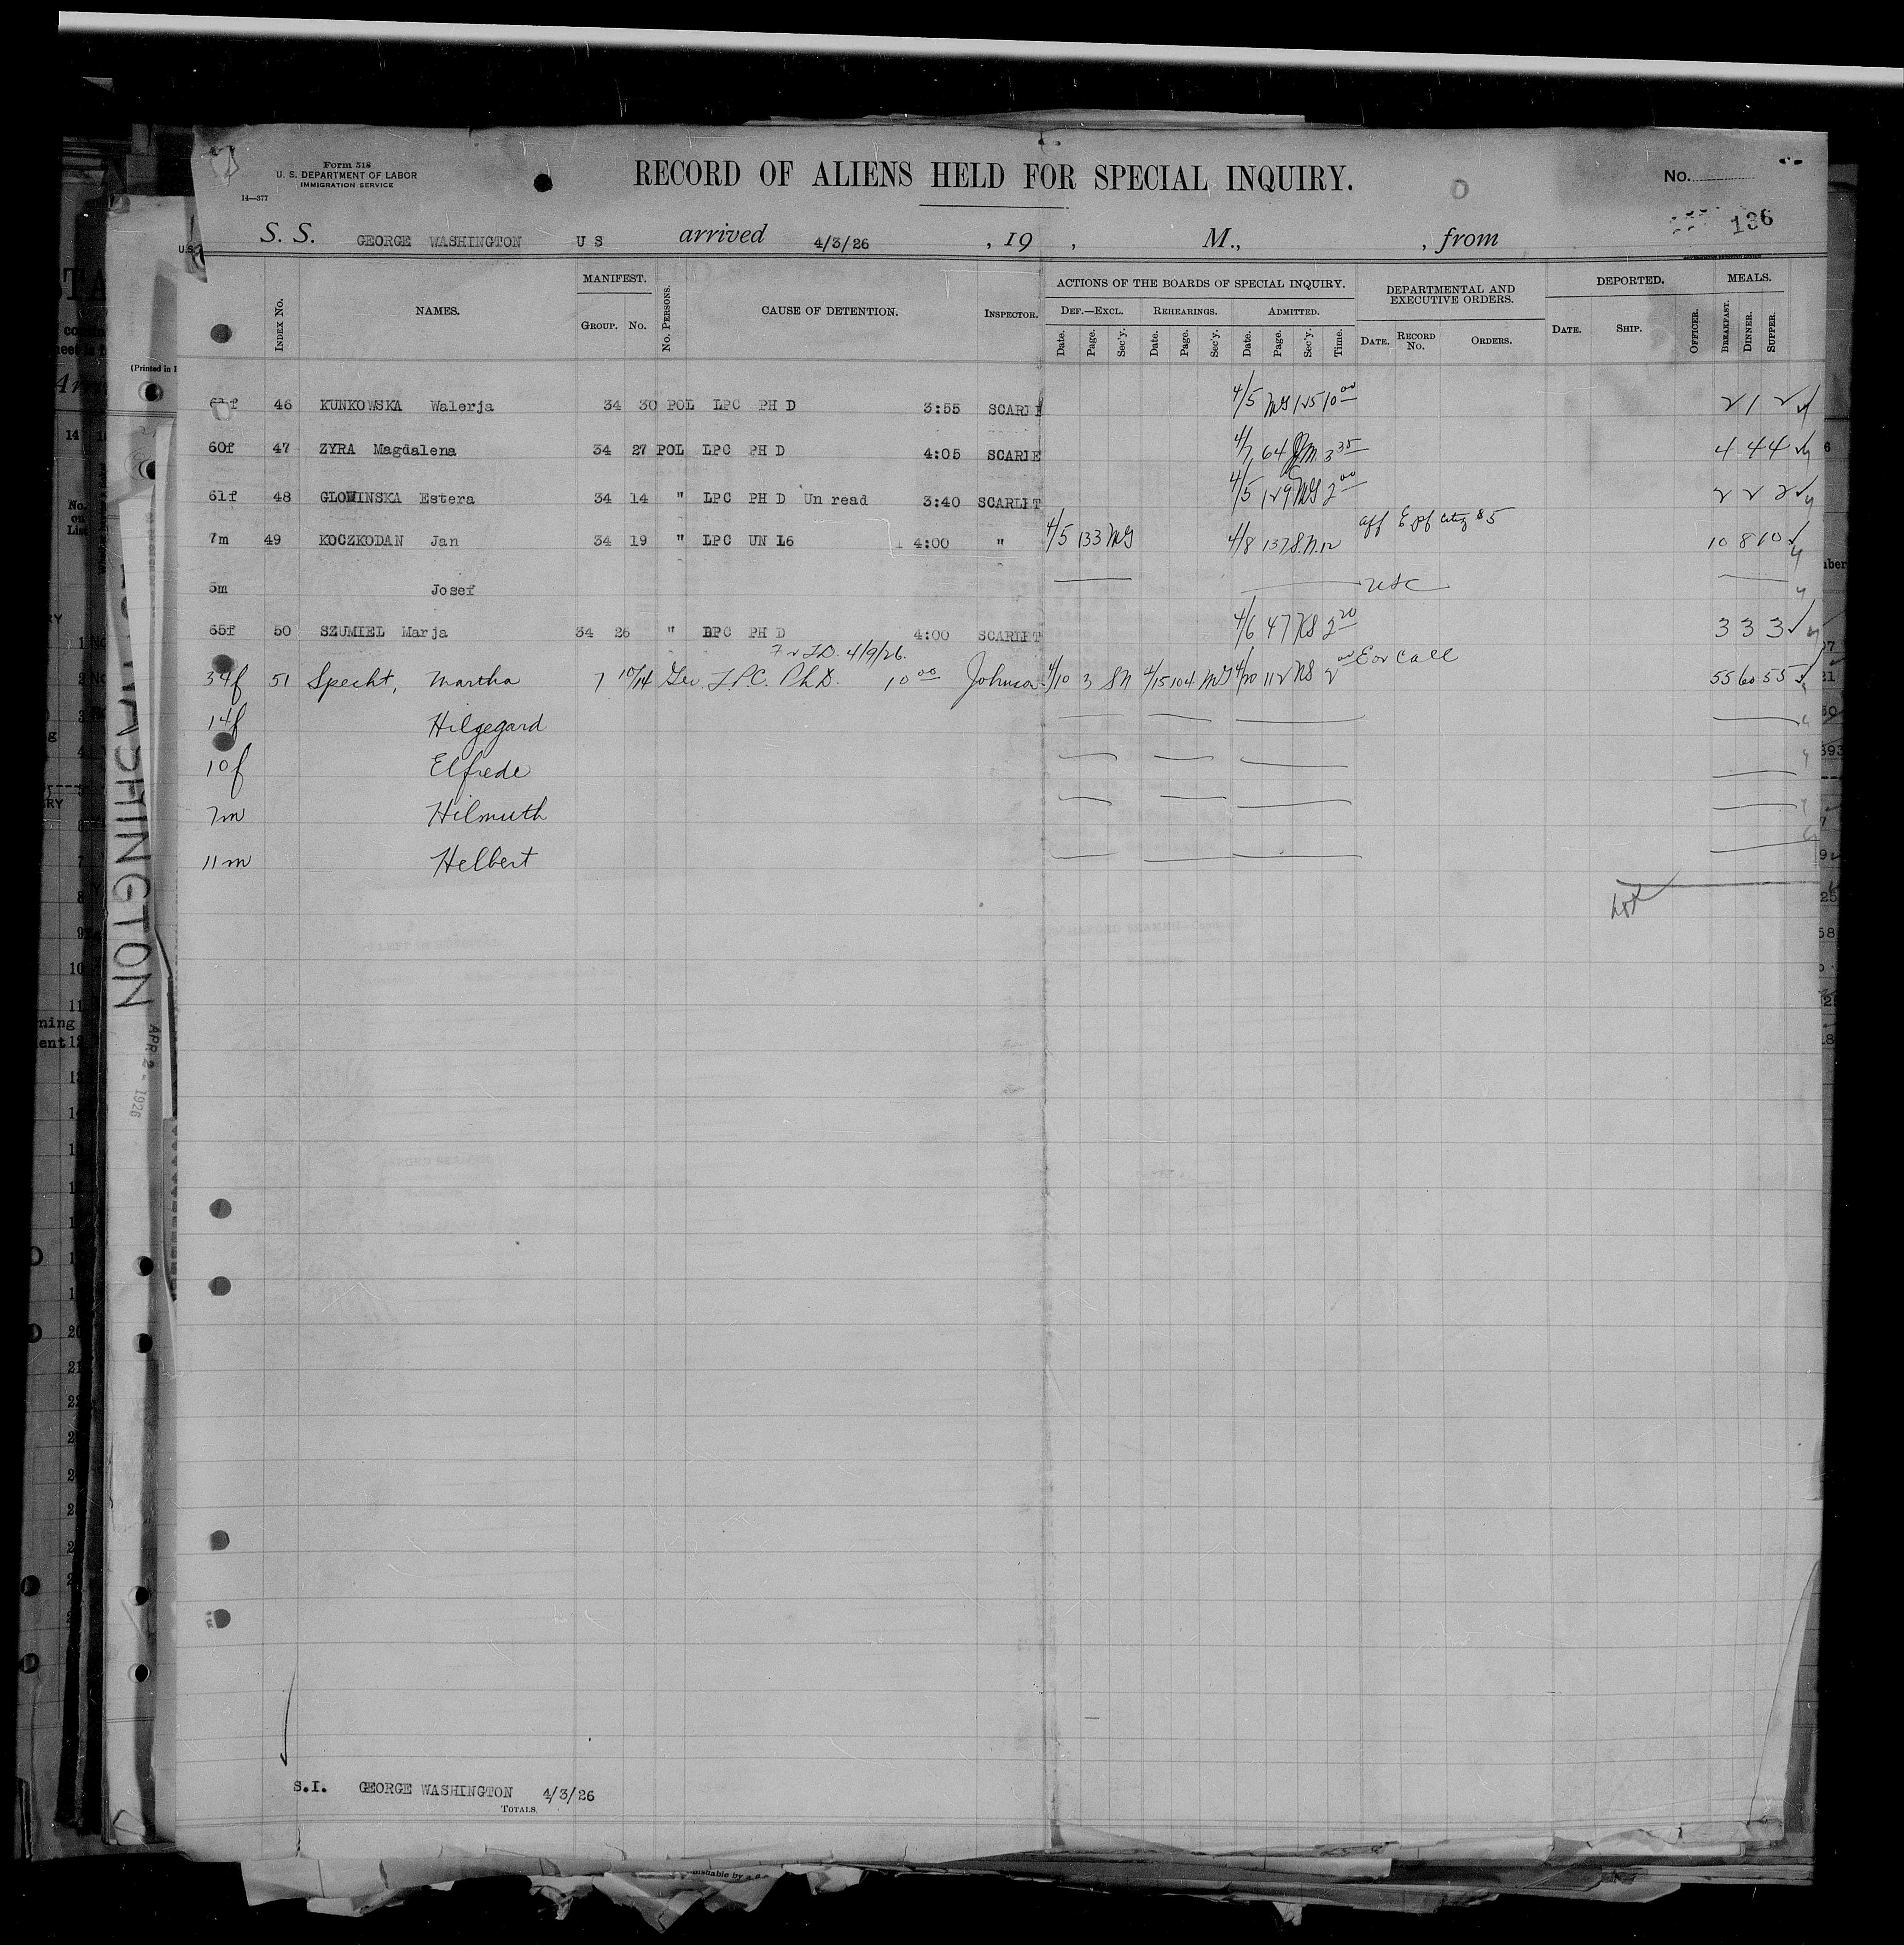 Form 518
U. S. DEPARTMENT OF LABOR
IMMIGRATION SERVICE
14—377
RECORD OF ALIENS HELD FOR SPECIAL INQUIRY.
No.
136
S. S. GEORGE WASHINGTON U S arrived 4/3/26 , 19 , M., , from
INDEX No. NAMES. MANIFEST. GROUP. No. No. PERSONS. CAUSE OF DETENTION. INSPECTOR.
ACTIONS OF THE BOARDS OF SPECIAL INQUIRY. DEF.—EXCL. REHEARINGS. ADMITTED.
Date. Page. Sec'y. Date. Page. Sec'y. Date. Page. Sec'y. Time.
DEPARTMENTAL AND EXECUTIVE ORDERS. DATE. RECORD No. ORDERS.
DEPORTED. DATE. SHIP. OFFICER.
MEALS. BREAKFAST. DINNER. SUPPER.
46 KUNKOWSKA Walerja 34 30 POL LPC PH D 3:55 4/5 MG 125 10 00 2 1 2
60f 47 ZYRA Magdalena 34 27 POL LPC PH D 4:05 4/7 64 3 35 4 4 4
61f 48 GLOWINSKA Estera 34 14 " LPC PH D Un read 3:40 SCARLET 4/5 129 MG 2 00 2 2 2
7m 49 KOCZKODAN Jan 34 19 " LPC UN 16 4:00 " 4/5 133 MG 4/8 137 S.N. 12 aff $5 10 8 10
5m Josef USC
65f 50 SZUMIEL Marja 34 26 " LPC PH D 4:00 SCARLET 4/6 47 NS 2 20 3 3 3
4/9/26.
34f 51 Specht, Martha 7 10/14 Ger. L.P.C. Ph.D. 10 00 Johnson 4/10 3 SN 4/15 104 MG 4/20 112 NS 2 00 call 55 60 55
14f Hilgegard
10f Elfrede
7m Hilmuth
11m Helbert
S.I. GEORGE WASHINGTON 4/3/26
TOTALS.
WASHINGTON
APR 2 - 1926
(Printed in
No. on List